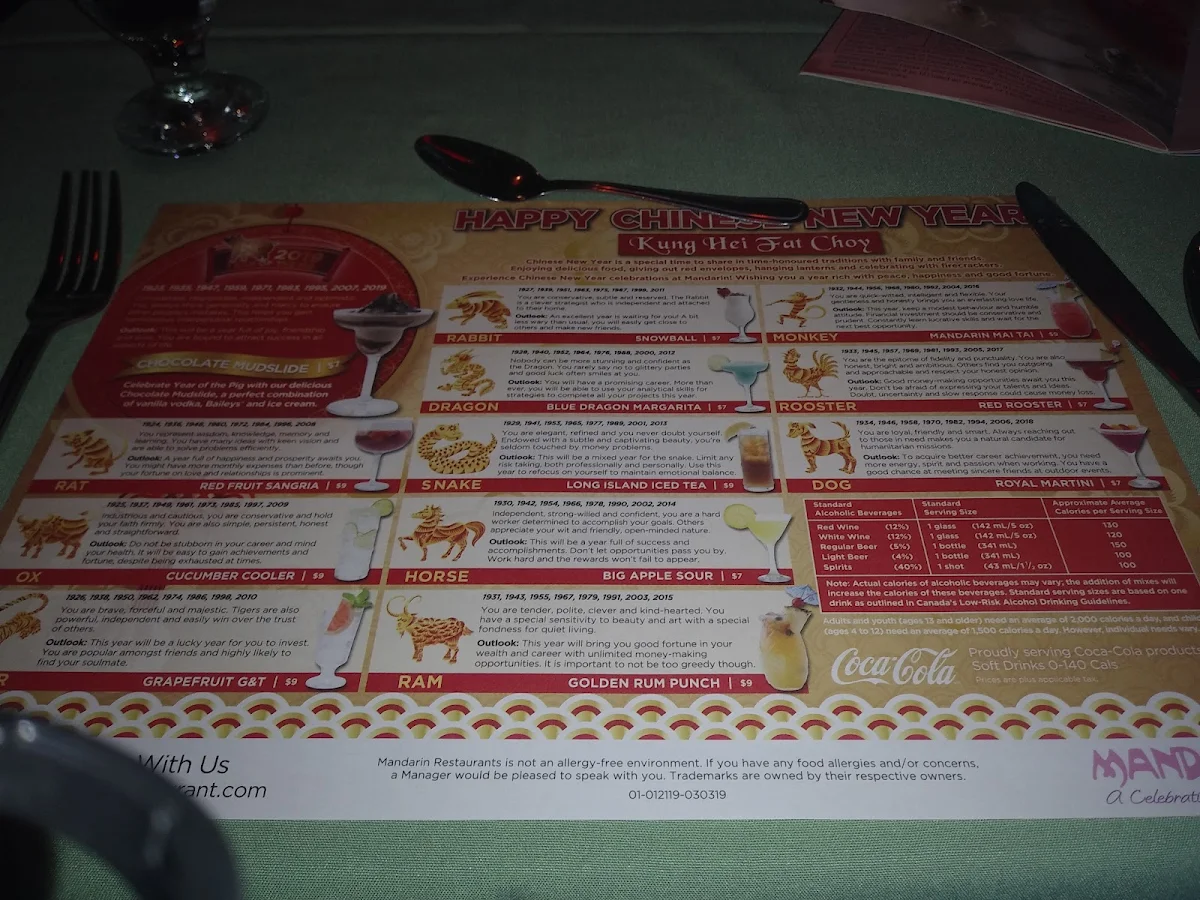 HAPPY CHINESE NEW YEAR
Kung Hei Fat Choy
Chinese New Year is a special time to share in time-honoured traditions with family and friends.
Enjoying delicious food, giving out red envelopes, hanging lanterns and celebrating with firecrackers.
Experience Chinese New Year celebrations at Mandarin! Wishing you a year rich with peace, happiness and good fortune.
1923, 1935, 1947, 1959, 1971, 1983, 1995, 2007, 2019
CHOCOLATE MUDSLIDE | $7
Celebrate Year of the Pig with our delicious
Chocolate Mudslide, a perfect combination
of vanilla vodka, Baileys® and ice cream.
1924, 1936, 1948, 1960, 1972, 1984, 1996, 2008
You represent wisdom, knowledge, memory and
learning. You have many ideas with keen vision and
are able to solve problems efficiently.
Outlook: A year full of happiness and prosperity awaits you.
You might have more monthly expenses than before, though
your fortune on love and relationships is prominent.
RAT RED FRUIT SANGRIA | $9
1925, 1937, 1949, 1961, 1973, 1985, 1997, 2009
Industrious and cautious, you are conservative and hold
your faith firmly. You are also simple, persistent, honest
and straightforward.
Outlook: Do not be stubborn in your career and mind
your health. It will be easy to gain achievements and
fortune, despite being exhausted at times.
OX CUCUMBER COOLER | $9
1926, 1938, 1950, 1962, 1974, 1986, 1998, 2010
You are brave, forceful and majestic. Tigers are also
powerful, independent and easily win over the trust
of others.
Outlook: This year will be a lucky year for you to invest.
You are popular amongst friends and highly likely to
find your soulmate.
R GRAPEFRUIT G&T | $9
1927, 1939, 1951, 1963, 1975, 1987, 1999, 2011
You are conservative, subtle and reserved. The Rabbit
is a clever strategist who is independent and attached
to their home.
Outlook: An excellent year is waiting for you! A bit
less wary than usual, you will easily get close to
others and make new friends.
RABBIT SNOWBALL | $7
1928, 1940, 1952, 1964, 1976, 1988, 2000, 2012
Nobody can be more stunning and confident as
the Dragon. You rarely say no to glittery parties
and good luck often smiles at you.
Outlook: You will have a promising career. More than
ever, you will be able to use your analytical skills for
strategies to complete all your projects this year.
DRAGON BLUE DRAGON MARGARITA | $7
1929, 1941, 1953, 1965, 1977, 1989, 2001, 2013
You are elegant, refined and you never doubt yourself.
Endowed with a subtle and captivating beauty, you're
seldom touched by money problems.
Outlook: This will be a mixed year for the snake. Limit any
risk taking, both professionally and personally. Use this
year to refocus on yourself to maintain emotional balance.
SNAKE LONG ISLAND ICED TEA | $9
1930, 1942, 1954, 1966, 1978, 1990, 2002, 2014
Independent, strong-willed and confident, you are a hard
worker determined to accomplish your goals. Others
appreciate your wit and friendly, open-minded nature.
Outlook: This will be a year full of success and
accomplishments. Don't let opportunities pass you by.
Work hard and the rewards won't fail to appear.
HORSE BIG APPLE SOUR | $7
1931, 1943, 1955, 1967, 1979, 1991, 2003, 2015
You are tender, polite, clever and kind-hearted. You
have a special sensitivity to beauty and art with a special
fondness for quiet living.
Outlook: This year will bring you good fortune in your
wealth and career with unlimited money-making
opportunities. It is important to not be too greedy though.
RAM GOLDEN RUM PUNCH | $9
1932, 1944, 1956, 1968, 1980, 1992, 2004, 2016
You are quick-witted, intelligent and flexible. Your
generosity and honesty brings you an everlasting love life.
Outlook: This year, keep a modest behaviour and humble
attitude. Financial investment should be conservative and
prudent. Constantly learn lucrative skills and wait for the
next best opportunity.
MONKEY MANDARIN MAI TAI | $9
1933, 1945, 1957, 1969, 1981, 1993, 2005, 2017
You are the epitome of fidelity and punctuality. You are also
honest, bright and ambitious. Others find you outgoing
and approachable and respect your honest opinion.
Outlook: Good money-making opportunities await you this
year. Don't be afraid of expressing your talents and ideas.
Doubt, uncertainty and slow response could cause money loss.
ROOSTER RED ROOSTER | $7
1934, 1946, 1958, 1970, 1982, 1994, 2006, 2018
You are loyal, friendly and smart. Always reaching out
to those in need makes you a natural candidate for
humanitarian missions.
Outlook: To acquire better career achievement, you need
more energy, spirit and passion when working. You have a
good chance at meeting sincere friends at outdoor events.
DOG ROYAL MARTINI | $7
Standard Alcoholic Beverages Standard Serving Size Approximate Average Calories per Serving Size
Red Wine (12%) 1 glass (142 mL/5 oz) 130
White Wine (12%) 1 glass (142 mL/5 oz) 120
Regular Beer (5%) 1 bottle (341 mL) 150
Light Beer (4%) 1 bottle (341 mL) 100
Spirits (40%) 1 shot (43 mL/1 1/2 oz) 100
Note: Actual calories of alcoholic beverages may vary; the addition of mixes will
increase the calories of these beverages. Standard serving sizes are based on one
drink as outlined in Canada's Low-Risk Alcohol Drinking Guidelines.
Adults and youth (ages 13 and older) need an average of 2,000 calories a day, and child
(ages 4 to 12) need an average of 1,500 calories a day. However, individual needs vary
Coca-Cola
Proudly serving Coca-Cola products
Soft Drinks 0-140 Cals
Prices are plus applicable tax.
With Us
rant.com
Mandarin Restaurants is not an allergy-free environment. If you have any food allergies and/or concerns,
a Manager would be pleased to speak with you. Trademarks are owned by their respective owners.
01-012119-030319
MAND
A Celebrati